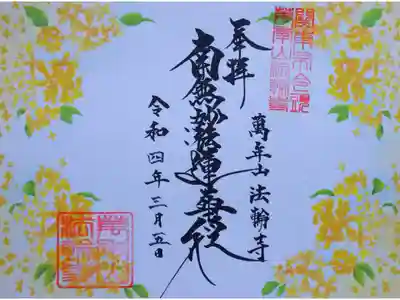 奉拝
萬年山 法輪寺
南無妙法蓮華経
令和四年三月五日